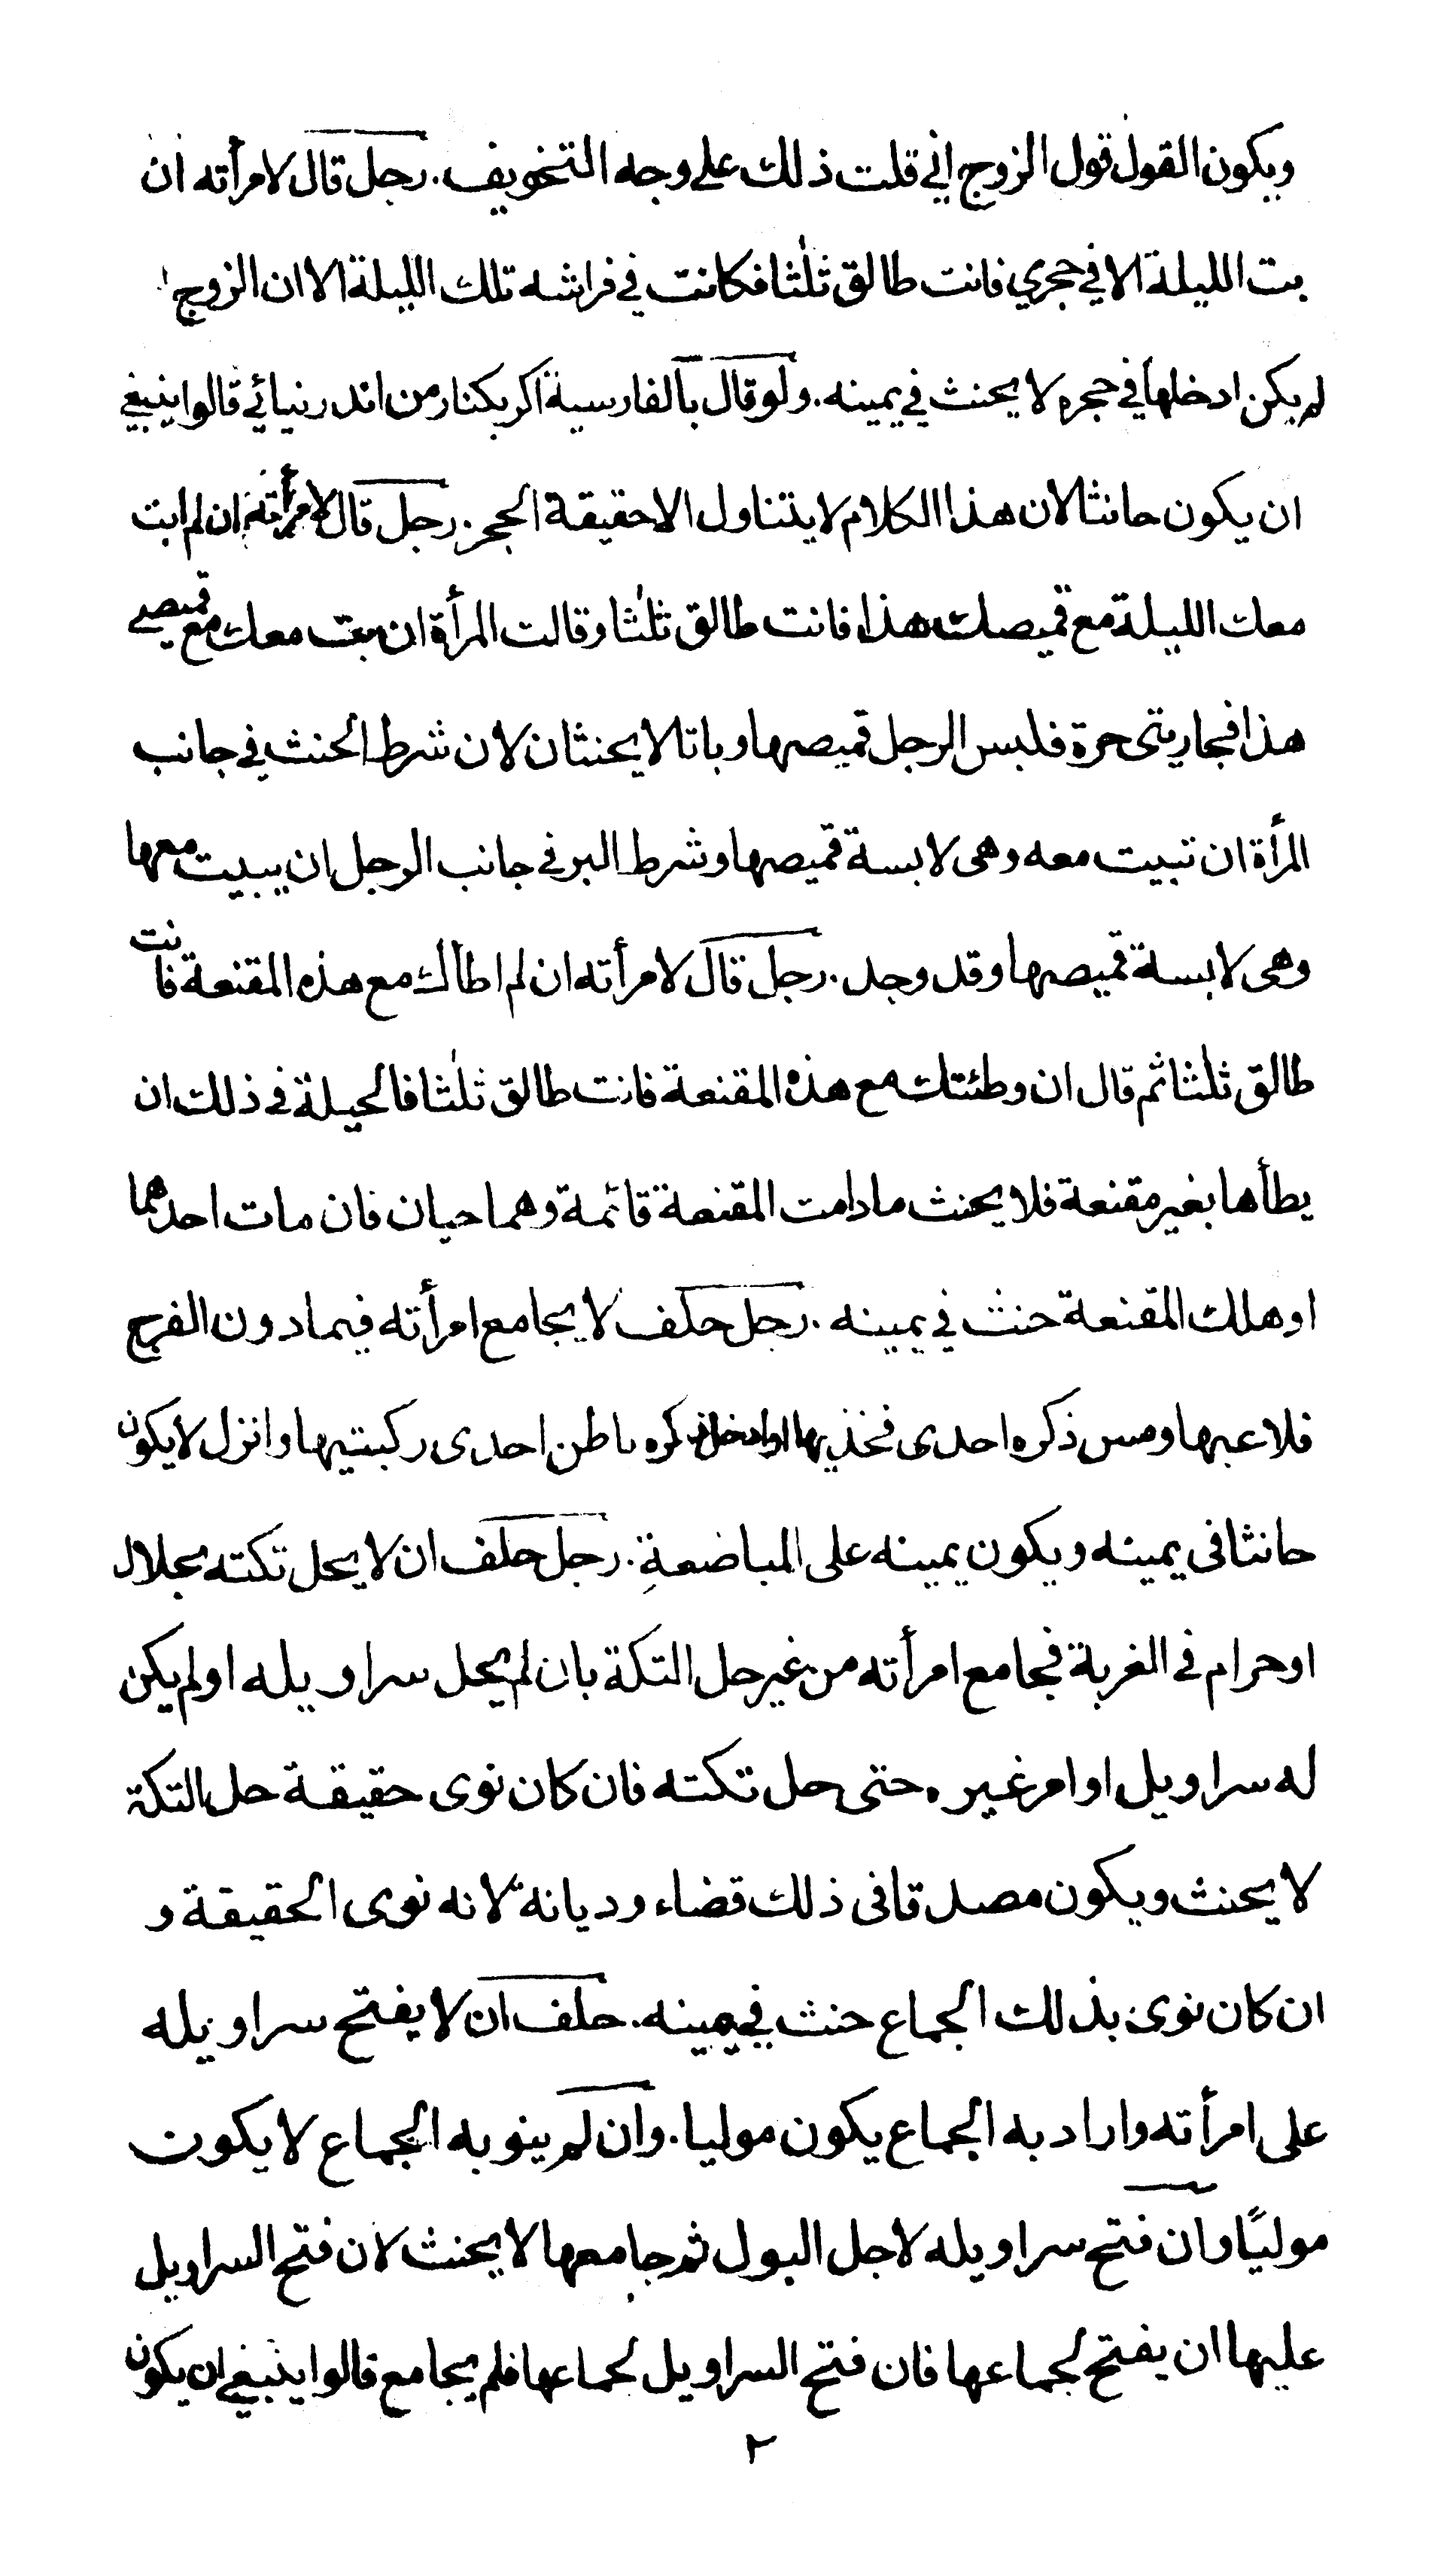 ويكون القول قول الزوج اني قلت ذلك على وجه التخويف. رجل قال لامرأته ان
بت الليلة الا في حجري فانت طالق ثلٰثا فكانت في فراشه تلك الليلة الا ان الزوج
لم يكن ادخلها في حجره لا يحنث في يمينه. ولو قال بالفارسية اكر بكنار من اندر نيائي قالوا ينبغي
ان يكون حانثا لان هذا الكلام لا يتناول الا حقيقة الحجر. رجل قال لامرأته ان لم ابت
معك الليلة مع قميصك هذا فانت طالق ثلٰثا وقالت المرأة ان بت معك مع قميصي
هذا فجاريتى حرة فلبس الرجل قميصها وباتا لا يحنثان لان شرط الحنث في جانب
المرأة ان تبيت معه وهى لابسة قميصها وشرط البر في جانب الرجل ان يبيت معها
وهى لابسة قميصها وقد وجد. رجل قال لامرأته ان لم اطأك مع هذه المقنعة فانت
طالق ثلٰثا ثم قال ان وطئتك مع هذه المقنعة فانت طالق ثلٰثا فالحيلة في ذلك ان
يطأها بغير مقنعة فلا يحنث ما دامت المقنعة قائمة وهما حيان فان مات احدهما
او هلك المقنعة حنث في يمينه. رجل حلف لا يجامع امرأته فيما دون الفرج
فلاعبها ومس ذكره احدى فخذيها او ادخل ذكره باطن احدى ركبتيها وانزل لا يكون
حانثا فى يمينه ويكون يمينه على المباضعة. رجل حلف ان لا يحل تكته بحلال
او حرام فى الغربة فجامع امرأته من غير حل التكة بان لم يحل سراويله او لم يكن
له سراويل او امر غيره حتى حل تكته فان كان نوى حقيقة حل التكة
لا يحنث ويكون مصدقا فى ذلك قضاء وديانة لانه نوى الحقيقة و
ان كان نوى بذلك الجماع حنث في يمينه. حلف ان لا يفتح سراويله
على امرأته واراد به الجماع يكون موليا. وان لم ينو به الجماع لا يكون
موليًا وان فتح سراويله لاجل البول ثم جامعها لا يحنث لان فتح السراويل
عليها ان يفتح لجماعها فان فتح السراويل لجماعها فلم يجامع قالوا ينبغي ان يكون
٢